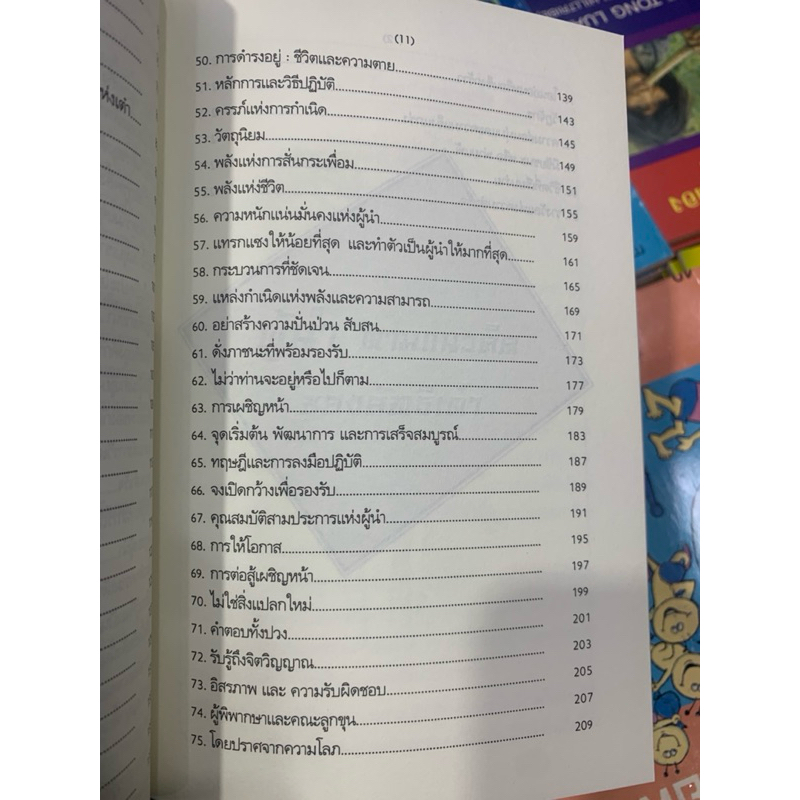 (11)
50. การดำรงอยู่ : ชีวิตและความตาย 139
51. หลักการและวิธีปฏิบัติ 143
52. ครรภ์แห่งการกำเนิด 145
53. วัตถุนิยม 149
54. พลังแห่งการสั่นกระเพื่อม 151
55. พลังแห่งชีวิต 155
56. ความหนักแน่นมั่นคงแห่งผู้นำ 159
57. แทรกแซงให้น้อยที่สุด และทำตัวเป็นผู้นำให้มากที่สุด 161
58. กระบวนการที่ชัดเจน 165
59. แหล่งกำเนิดแห่งพลังและความสามารถ 169
60. อย่าสร้างความปั่นป่วน สับสน 171
61. ดั่งภาชนะที่พร้อมรองรับ 173
62. ไม่ว่าท่านจะอยู่หรือไปก็ตาม 177
63. การเผชิญหน้า 179
64. จุดเริ่มต้น พัฒนาการ และการเสร็จสมบูรณ์ 183
65. ทฤษฎีและการลงมือปฏิบัติ 187
66. จงเปิดกว้างเพื่อรองรับ 189
67. คุณสมบัติสามประการแห่งผู้นำ 191
68. การให้โอกาส 195
69. การต่อสู้เผชิญหน้า 197
70. ไม่ใช่สิ่งแปลกใหม่ 199
71. คำตอบทั้งปวง 201
72. รับรู้ถึงจิตวิญญาณ 203
73. อิสรภาพ และ ความรับผิดชอบ 205
74. ผู้พิพากษาและคณะลูกขุน 207
75. โดยปราศจากความโลภ 209
TONG LUA